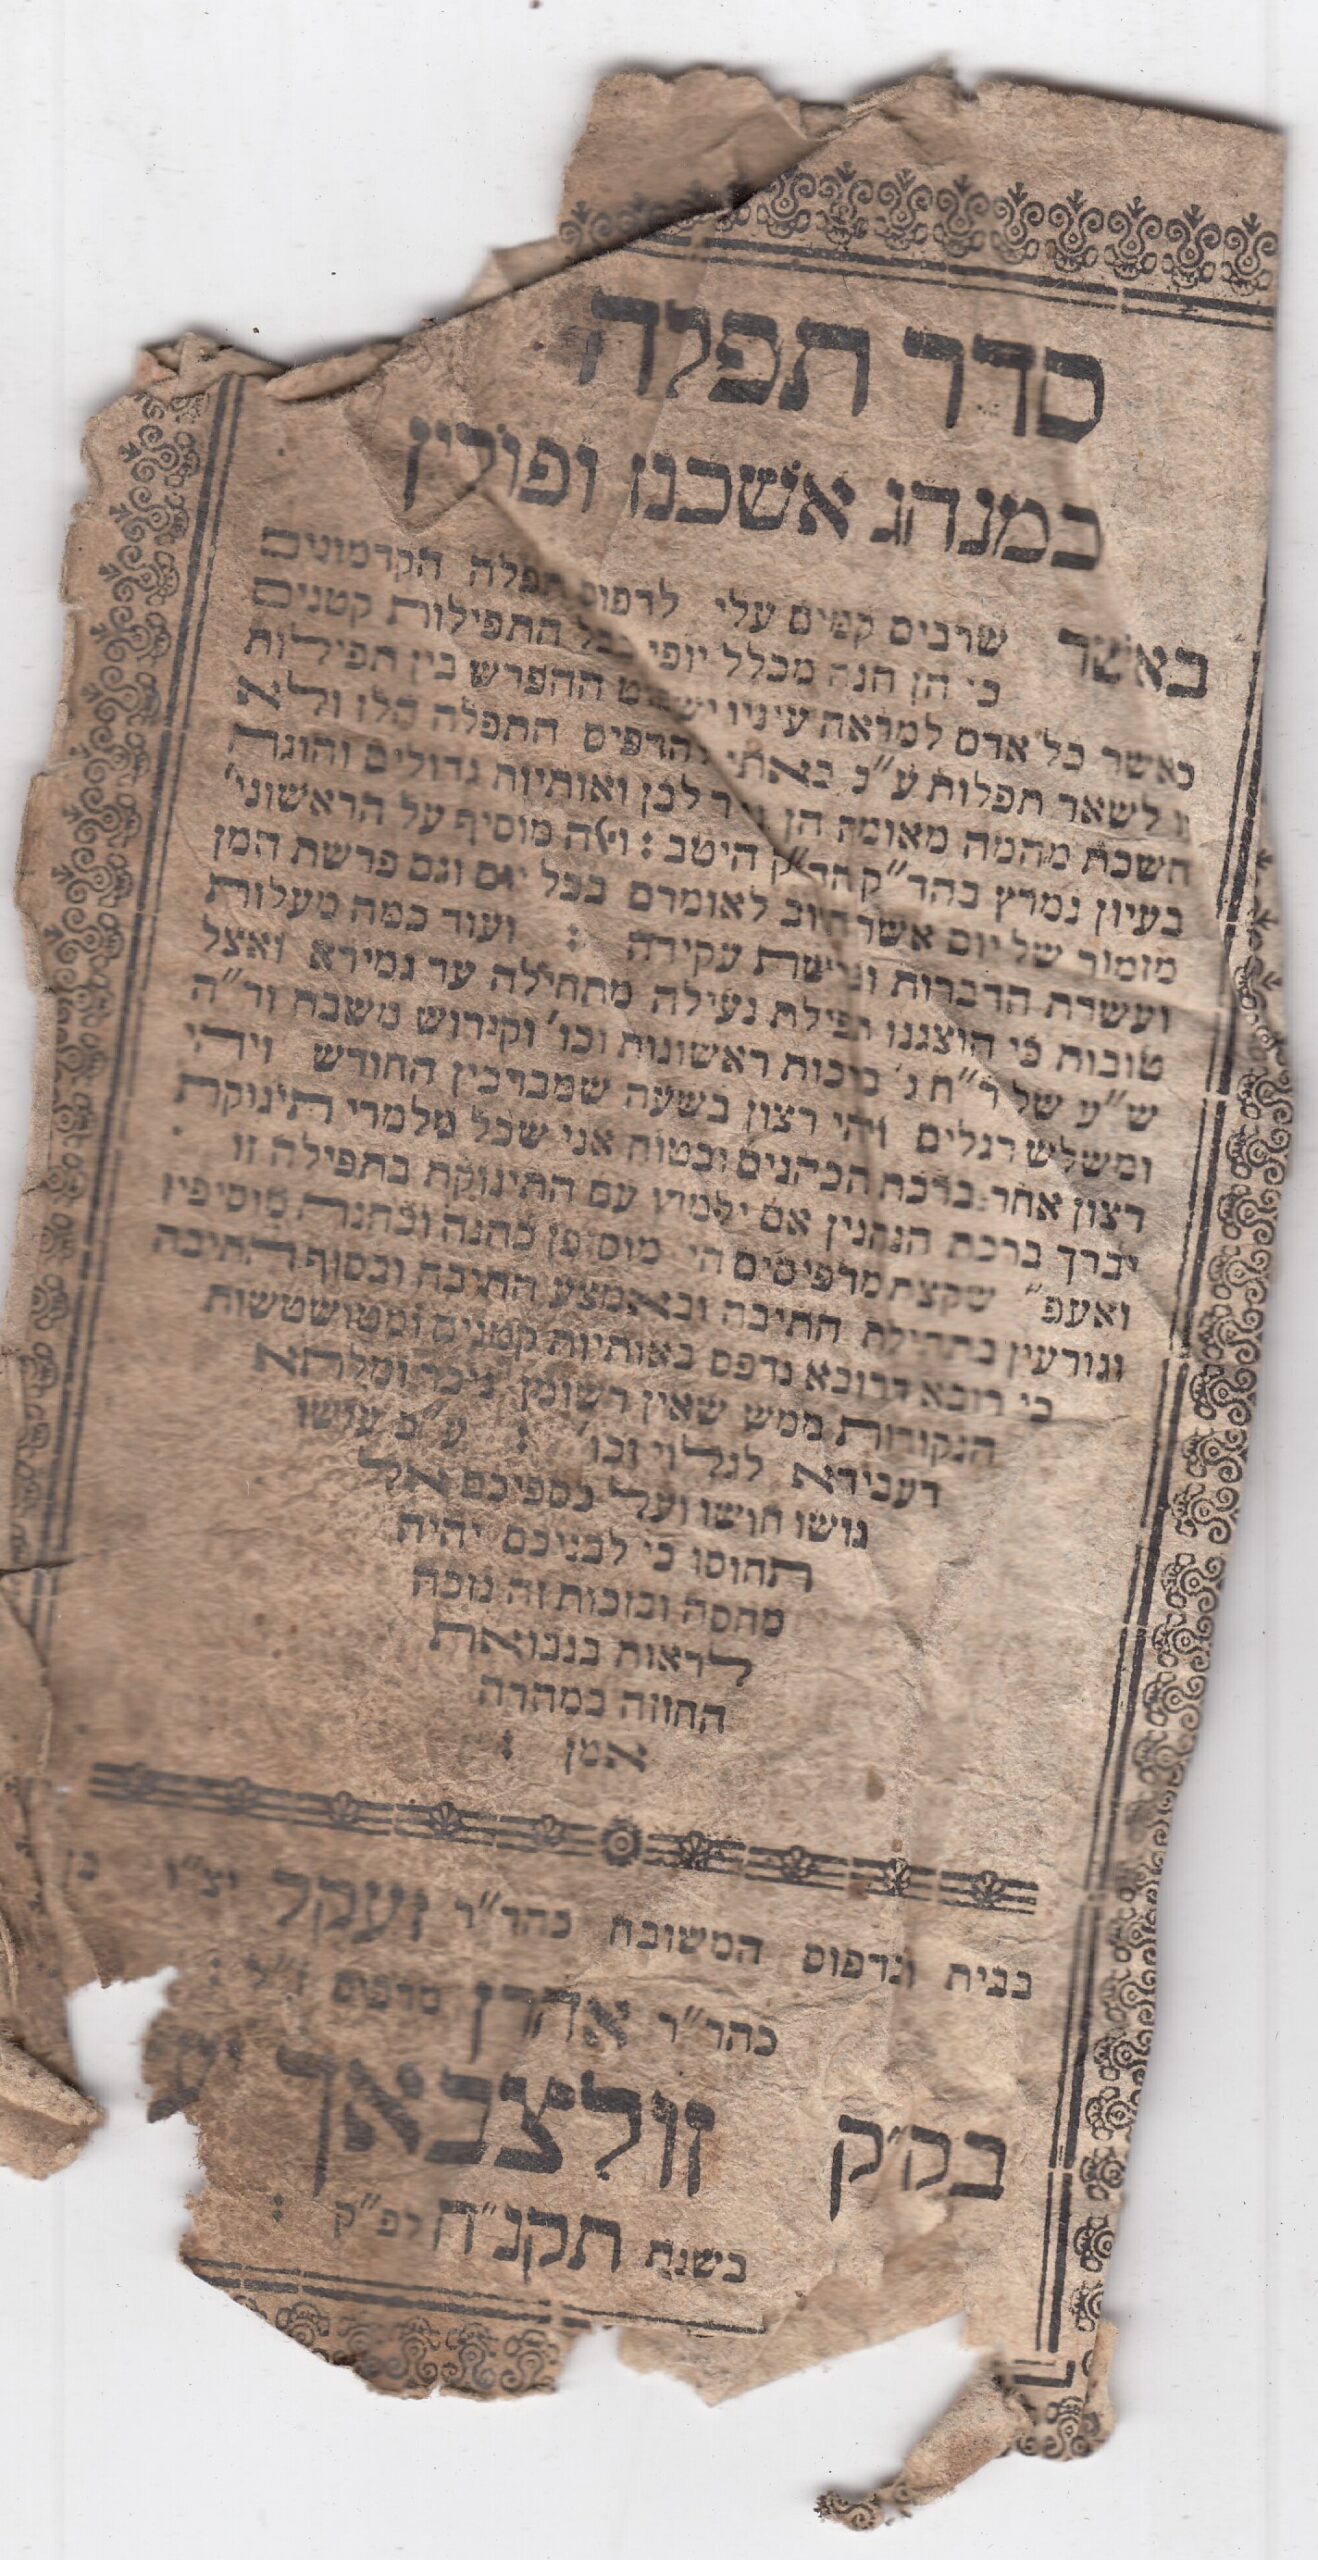 סדר תפלה
כמנהג אשכנז ופולין
באשר שרבים קמים עלי לדפוס תפלה הקדמונים
כי הן הנה מכלל יופי בכל התפילות קטנים
כאשר כל אדם למראה עיניו ההפרש בין תפילות
לשאר תפלות ע״נ באתי להדפיס התפלה הלז ולא
חשכתי מהמה מאומה הן נייר לבן ואותיות גדולים והוגה
בעיון נמרץ בהד״ק הד״ק היטב : וזה מוסיף על הראשוני׳
מזמור של יום אשר חיוב לאומרם בכל יום וגם פרשת המן
ועשרת הדברות ופרשת עקידה : ועוד כמה מעלות
טובות כי הוצגנו תפילת נעילה מתחילה עד גמירא ואצל
ש״ע של ר״ח ג׳ ברכות ראשונות וכו׳ וקידוש משבת ור״ה
ומשלש רגלים ויהי רצון בשעה שמברכין החודש ויהי
רצון אחר ברכת הכהנים ובטוח אני שכל מלמדי תינוקת
יברך ברכת הנהנין אם ילמדו עם התינוקת בתפילה זו
ואעפ״ שקצת מדפיסים הי׳ מוסיפן כהנה וכהנה מוסיפין
וגורעין בתחילת התיבה ובאמצע התיבה ובסוף התיבה
כי רובא דרובא נדפס באותיות קטנים ומטושטשות
הנקודות ממש שאין רשומן ניכר ומלתא
דעבידא לגלוי וכו׳ : ע״כ עושו
גושו חושו ועל כספיכם אל
תחוסו כי לבניכם יהיה
מחסה ובזכות זה נזכה
לראות בנבואת
החוזה במהרה
אמן :
בבית ודפוס המשובח כהר״ר זעקל יצ״ו בן
כהר״ר אהרן מדפיס ז״ל :
בק״ק זולצבאך יע
בשנת תקנ״ח לפ״ק :